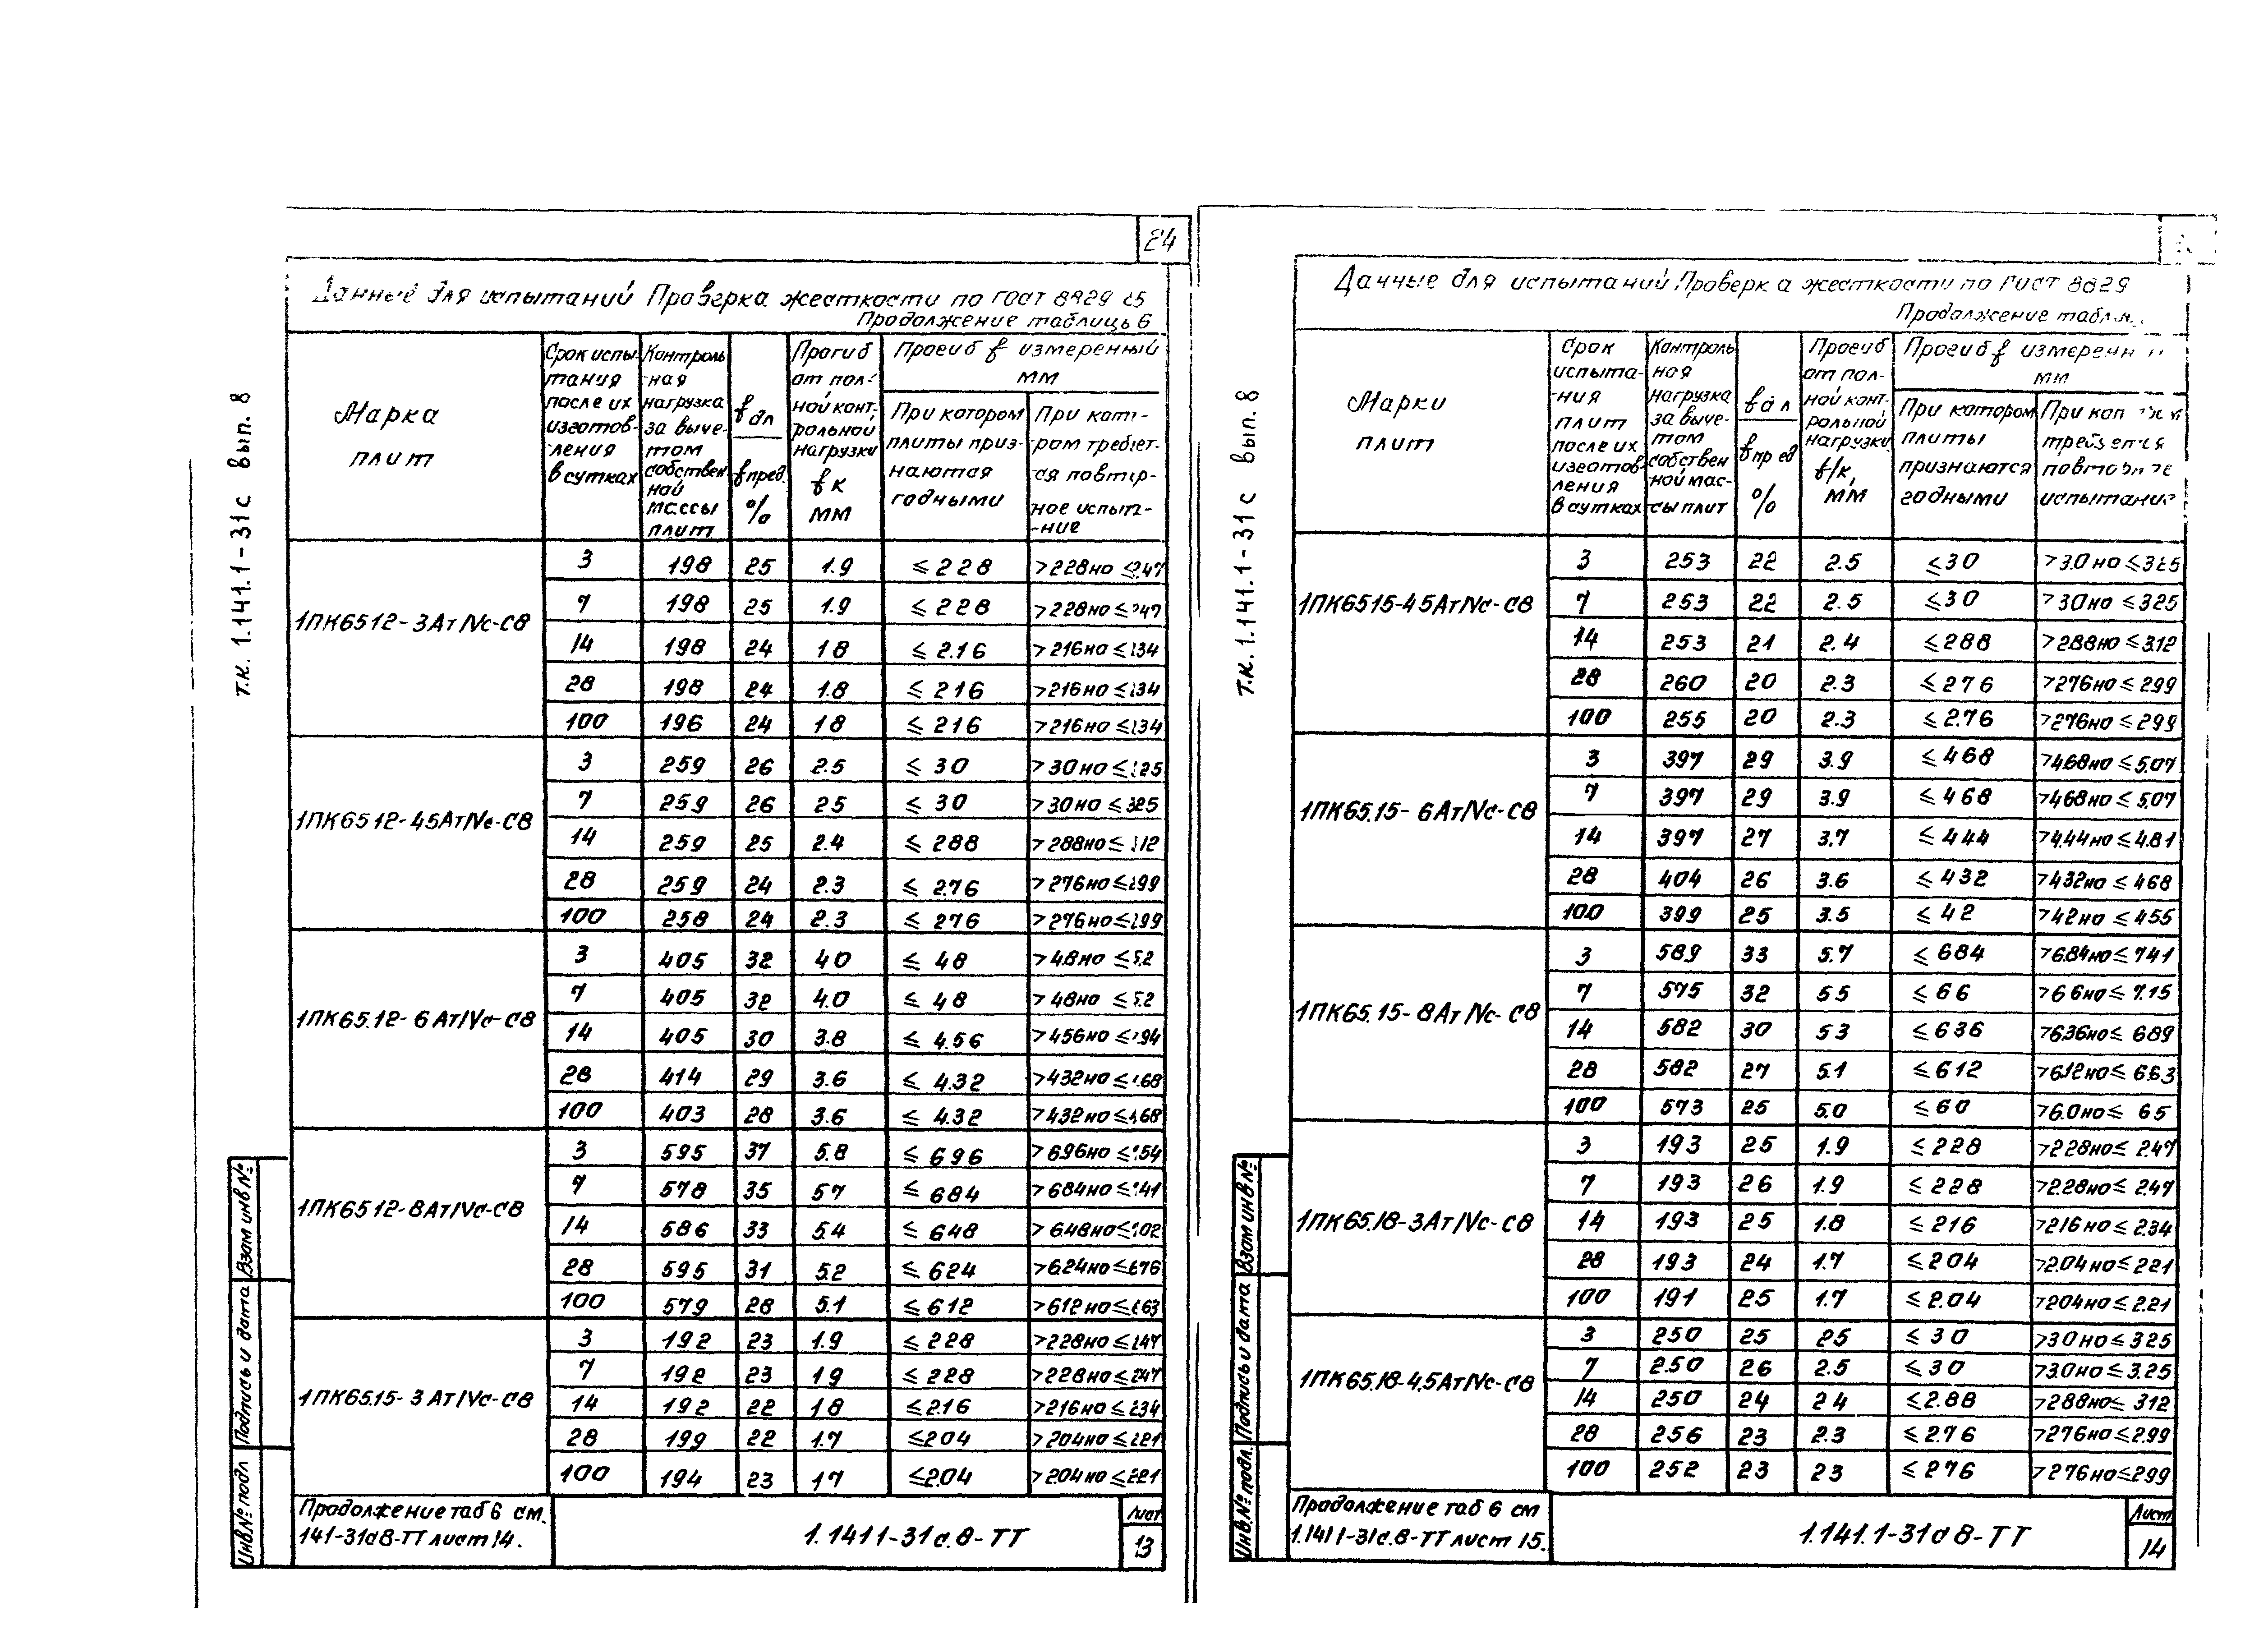 т.к. 1.141.1-31с вып. 8
24
Данные для испытаний Проверка жесткости по ГОСТ 8829 85
Продолжение таблицы 6
Марка плит
Срок испытания после их изготовления в сутках
Контрольная нагрузка за вычетом собственной массы плит
fдл / fпред. %
Прогиб от полной контрольной нагрузки fк мм
Прогиб f измеренный мм
При котором плиты признаются годными
При котором требуется повторное испытание
1ПК6512-3АтIVс-С8
3 198 25 1.9 ≤228 >228но ≤2.47
7 198 25 1.9 ≤228 >228но ≤247
14 198 24 18 ≤2.16 >216но ≤234
28 198 24 1.8 ≤216 >216но ≤234
100 196 24 18 ≤216 >216но ≤234
1ПК6512-45АтIVс-С8
3 259 26 2.5 ≤30 >30но ≤325
7 259 26 25 ≤30 >30но ≤325
14 259 25 2.4 ≤288 >288но ≤312
28 259 24 2.3 ≤2.76 >276но ≤299
100 258 24 2.3 ≤276 >276но ≤299
1ПК65.12-6АтIVс-С8
3 405 32 40 ≤48 >4.8но ≤5.2
7 405 32 4.0 ≤48 >48но ≤5.2
14 405 30 3.8 ≤4.56 >456но ≤494
28 414 29 3.6 ≤4.32 >432но ≤468
100 403 28 3.6 ≤4.32 >432но ≤468
1ПК6512-8АтIVс-С8
3 595 37 5.8 ≤696 >696но ≤754
7 578 35 57 ≤684 >684но ≤741
14 586 33 5.4 ≤648 >648но ≤702
28 595 31 52 ≤624 >6.24но ≤676
100 579 28 5.1 ≤612 >612но ≤663
1ПК6515-3АтIVс-С8
3 192 23 1.9 ≤228 >228но ≤247
7 192 23 19 ≤228 >228но ≤247
14 192 22 18 ≤216 >216но ≤234
28 199 22 1.7 ≤204 >204но ≤221
100 194 23 17 ≤2.04 >2.04но ≤221
Взам инв №
Подпись и дата
Инв.№ подл
Продолжение таб 6 см.
141-31с8-ТТ лист 14.
1.1411-31с.8-ТТ
Лист
13
т.к. 1.141.1-31с вып. 8
Данные для испытаний Проверка жесткости по ГОСТ 8829
Продолжение табли
Марки плит
Срок испытания плит после их изготовления в сутках
Контрольная нагрузка за вычетом собственной массы плит
fдл / fпред %
Прогиб от полной контрольной нагрузки f/к, мм
Прогиб f измеренн мм
При котором плиты признаются годными
При котором требуется повторное испытание
1ПК6515-45АтIVс-С8
3 253 22 2.5 ≤30 >3.0но ≤325
7 253 22 2.5 ≤30 >30но ≤325
14 253 21 2.4 ≤288 >2.88но ≤3.12
28 260 20 2.3 ≤276 >276но ≤299
100 255 20 2.3 ≤2.76 >276но ≤299
1ПК65.15-6АтIVс-С8
3 397 29 3.9 ≤468 >4.68но ≤5,07
7 397 29 3.9 ≤468 >468но ≤5,07
14 397 27 3.7 ≤444 >4.44но ≤4.81
28 404 26 3.6 ≤432 >432но ≤468
100 399 25 3.5 ≤42 >42но ≤455
1ПК65.15-8АтIVс-С8
3 589 33 5.7 ≤684 >6.84но ≤741
7 575 32 55 ≤66 >66но ≤7.15
14 582 30 53 ≤636 >6.36но ≤689
28 582 27 5.1 ≤612 >612но ≤6.63
100 573 25 5.0 ≤60 >6.0но ≤65
1ПК65.18-3АтIVс-С8
3 193 25 1.9 ≤228 >228но ≤2.47
7 193 26 1.9 ≤228 >2.28но ≤2.47
14 193 25 1.8 ≤216 >216но ≤2.34
28 193 24 1.7 ≤204 >2.04но ≤221
100 191 25 1.7 ≤2.04 >204но ≤2.21
1ПК65.18-4,5АтIVс-С8
3 250 25 25 ≤30 >30но ≤325
7 250 26 2.5 ≤30 >3.0но ≤3.25
14 250 24 24 ≤2.88 >288но ≤312
28 256 23 2.3 ≤2.76 >276но ≤2.99
100 252 23 23 ≤276 >276но ≤299
Взам инв №
Подпись и дата
Инв.№ подл.
Продолжение таб 6 см
1.1411-31с.8-ТТ лист 15.
1.141.1-31с8-ТТ
Лист
14